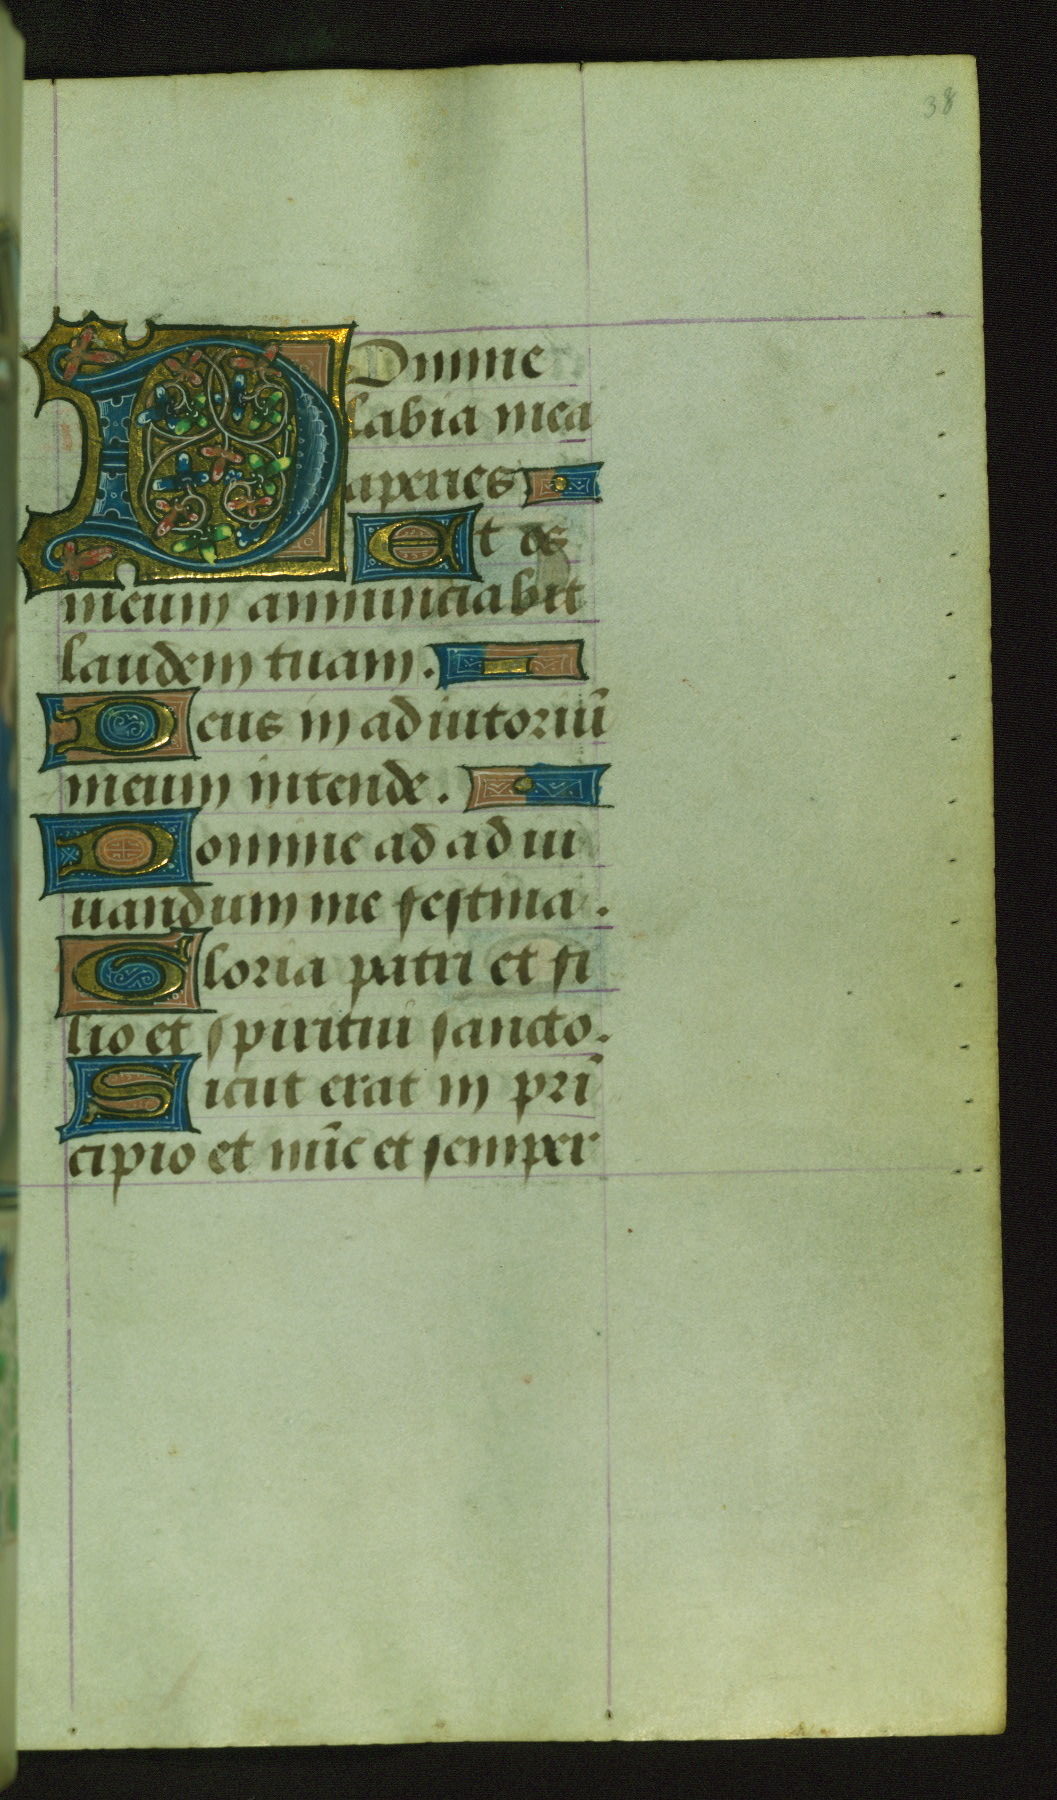 38
Domine
labia mea
aperies
Et os
meum annunciabit
laudem tuam.
Deus in adiutoriū
meum intende.
Domine ad ad iu
uandum me festina.
Gloria patri et fi
lio et spiritui sancto.
Sicut erat in pri͞
cipio et nūc et semper